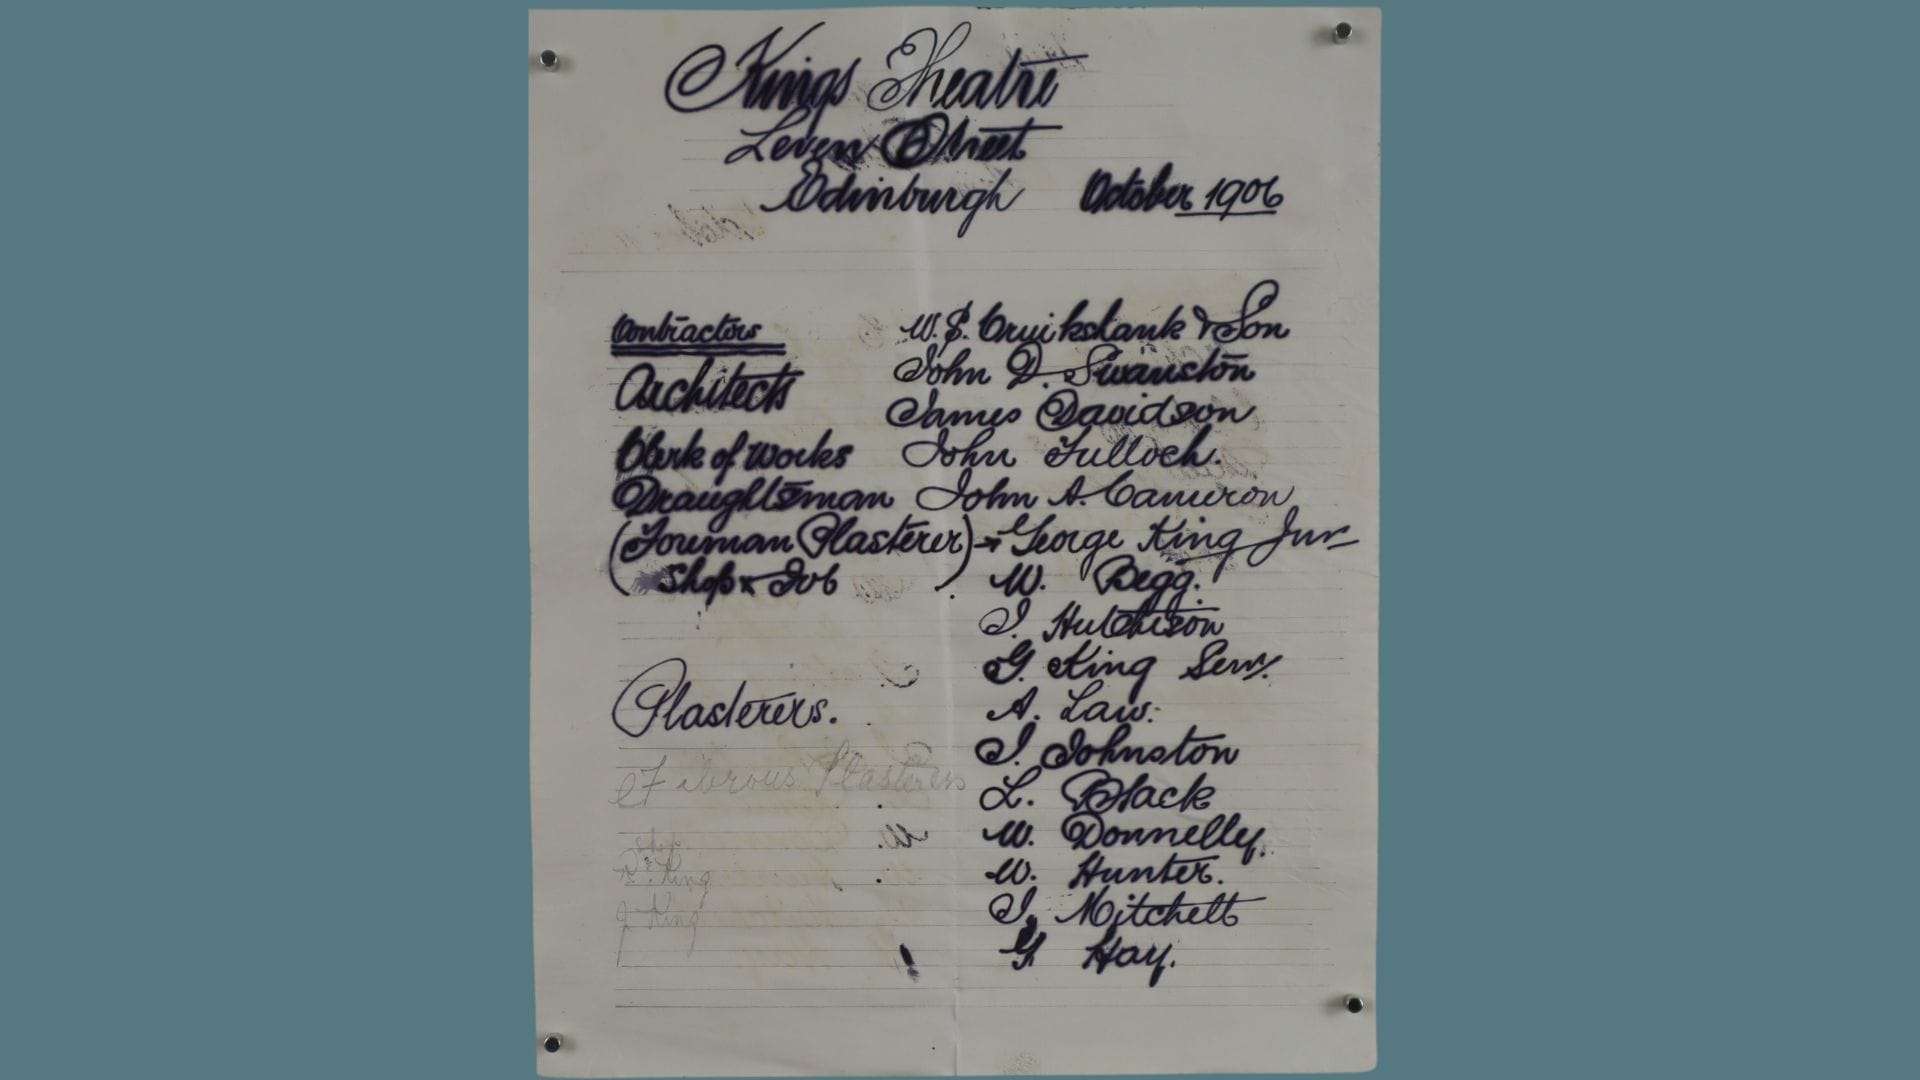 Kings Theatre
Leven Street
Edinburgh October 1906
Contractors W. S. Cruikshank & Son
Architects John D. Swanston
James Davidson
Clerk of Works John Tulloch.
Draughtsman John A. Cameron
(Foreman Plasterer) George King Junr
Shop & Job W. Begg.
J. Hutchison
G. King Senr.
A. Law.
Plasterers. J. Johnston
Fibrous Plasterers L. Black
W. Donnelly.
Shop
R. King W. Hunter.
J King J. Mitchell
G Hay.